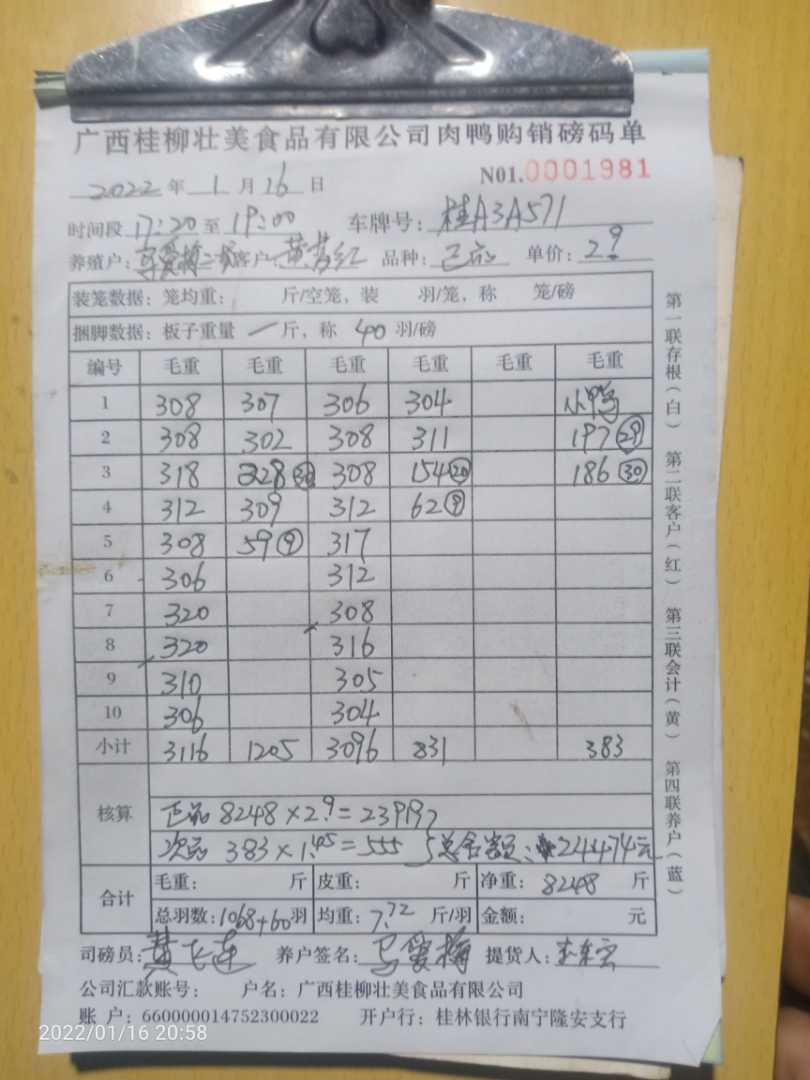 广西桂柳壮美食品有限公司肉鸭购销磅码单
2022 年 1 月 16 日 N01.0001981
时间段 17:20 至 19:00 车牌号: 桂A3A571
养殖户: 客户: 品种: 正品 单价: 2.9
装笼数据: 笼均重: 斤/空笼, 装 羽/笼, 称 笼/磅
捆脚数据: 板子重量 一 斤, 称 40 羽/磅
编号 毛重 毛重 毛重 毛重 毛重 毛重
1 308 307 306 304 小鸭
2 308 302 308 311 197 29
3 318 228 308 154 20 186 30
4 312 309 312 62 9
5 308 59 9 317
6 306 312
7 320 308
8 320 316
9 310 305
10 306 304
小计 3116 1205 3096 831 383
核算
正品 8248×2.9=23919.2
次品 383×1.45=555 总金额: 24474元
合计 毛重: 斤 皮重: 斤 净重: 8248 斤
总羽数: 1068+60 羽 均重: 7.72 斤/羽 金额: 元
司磅员: 养户签名: 马爱梅 提货人:
公司汇款账号: 户名: 广西桂柳壮美食品有限公司
账 户: 660000014752300022 开户行: 桂林银行南宁隆安支行
第一联存根(白) 第二联客户(红) 第三联会计(黄) 第四联养户(蓝)
2022/01/16 20:58